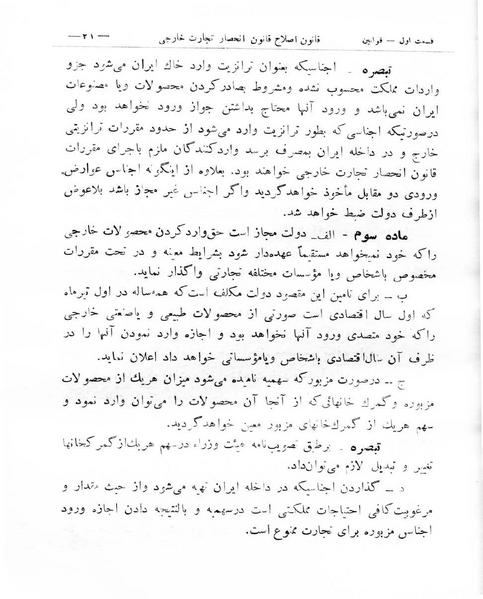 قسمت اول — قوانین قانون اصلاح قانون انحصار تجارت خارجی — ۲۱ —
تبصره ـ اجناسیکه بعنوان ترانزیت وارد خاك ایران می‌شود جزو
واردات مملکت محسوب نشده ومشروط بصادرکردن محصولات ویا مصنوعات
ایران نمی‌باشد و ورود آنها محتاج بداشتن جواز ورود نخواهد بود ولی
درصورتیکه اجناسی که بطور ترانزیت وارد می‌شود از حدود مقررات ترانزیتی
خارج و در داخله ایران بمصرف برسد واردکنندگان ملزم باجرای مقررات
قانون انحصار تجارت خارجی خواهند بود. بعلاوه از اینگونه اجناس عوارض
ورودی دو مقابل مأخوذ خواهدگردید واگر اجناس غیر مجاز باشد بلاعوض
ازطرف دولت ضبط خواهد شد.
ماده سوم - الف ـ دولت مجاز است حق‌واردکردن محصولات خارجی
راکه خود نمیخواهد مستقیماً عهده‌دار شود بشرایط معینه و در تحت مقررات
مخصوص باشخاص ویا مؤسسات مختلفه تجارتی واگذار نماید.
ب ـ برای تامین این مقصود دولت مکلف است که‌همه‌ساله در اول تیرماه
که اول سال اقتصادی است صورتی از محصولات طبیعی و یاصنعتی خارجی
راکه خود متصدی ورود آنها نخواهد بود و اجازه وارد نمودن آنها را در
ظرف آن سال‌اقتصادی باشخاص ویامؤسساتی خواهد داد اعلان نماید.
ج ـ درصورت مزبورکه سهمیه نامیده می‌شود میزان هریك از محصولات
مزبوره وگمرك خانهائی‌که از آنجا آن محصولات را می‌توان وارد نمود و
سهم هریك از گمرك‌خانهای مزبور معین خواهدگردید.
تبصره ـ برطبق تصویب‌نامه هیئت وزراء درسهم هریك‌ازگمرکخانها
تغییر و تبدیل لازم می‌توان‌داد.
د ـ گذاردن اجناسیکه در داخله ایران تهیه می‌شود واز حیث مقدار و
مرغوبیت‌کافی احتیاجات مملکتی است درسهمیه و بالنتیجه دادن اجازه ورود
اجناس مزبوره برای تجارت ممنوع است.